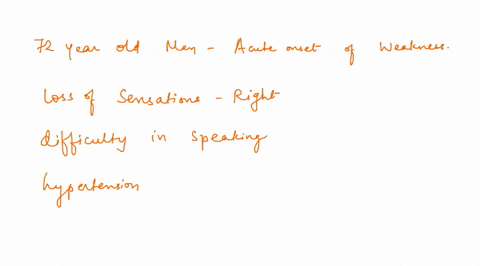 72 year old Man - Acute onset of Weakness.
Loss of Sensations - Right
difficulty in speaking
hypertension